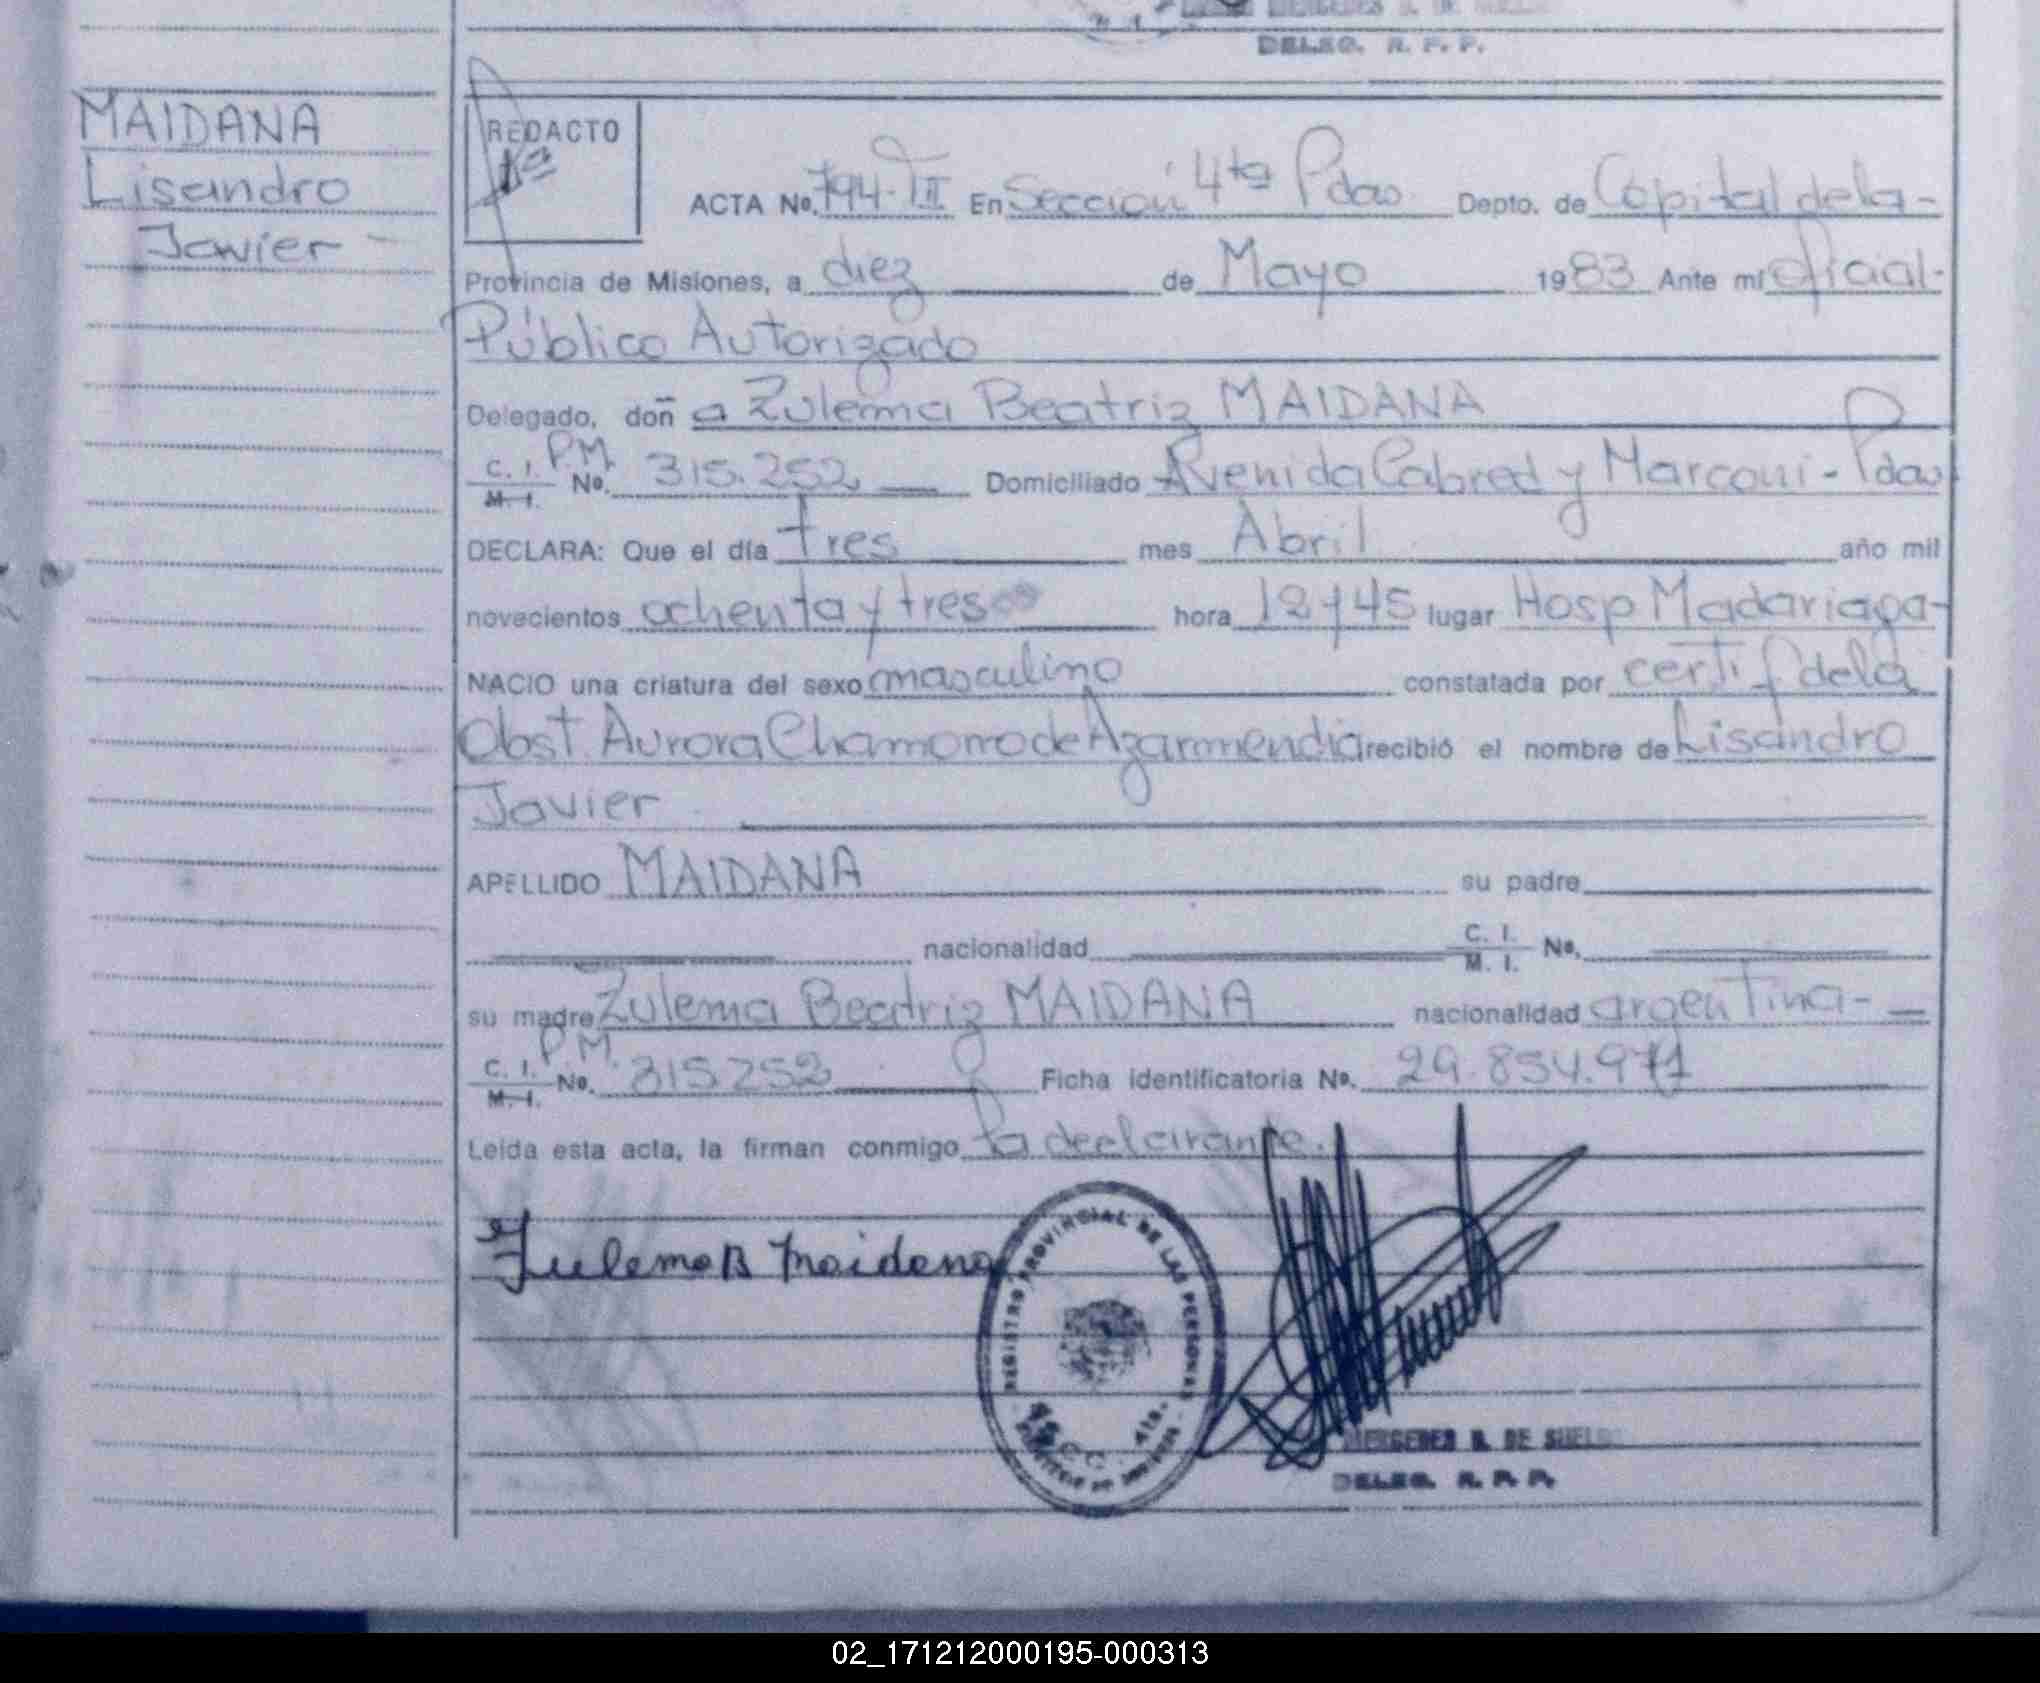 DELEG. R. P. P.
MAIDANA
Lisandro
Javier
REDACTO
ACTA No. 794-TII En Sección 4ta Pdas Depto. de Capital de la-
Provincia de Misiones, a diez de Mayo 1983 Ante mí oficial-
Público Autorizado
Delegado, doña Zulema Beatriz MAIDANA
C. I. P.M.
M. I. No. 315.252 Domiciliado Avenida Cabred y Marconi - Pdas
DECLARA: Que el día tres mes Abril año mil
novecientos ochenta y tres hora 12 y 45 lugar Hosp Madariaga-
NACIO una criatura del sexo masculino constatada por certif de la
Obst. Aurora Chamorro de Azarmendia recibió el nombre de Lisandro
Javier
APELLIDO MAIDANA su padre
nacionalidad C. I.
M. I. No.
su madre Zulema Beatriz MAIDANA nacionalidad argentina-
C. I. P.M.
M. I. No. 315252 Ficha identificatoria No. 29.854.971
Leída esta acta, la firman conmigo la declarante.
Zulema B Maidana
REGISTRO PROVINCIAL DE LAS PERSONAS
SECC. 4ta.
MERCEDES B. DE SUELD
DELEG. R. P. P.
02_171212000195-000313